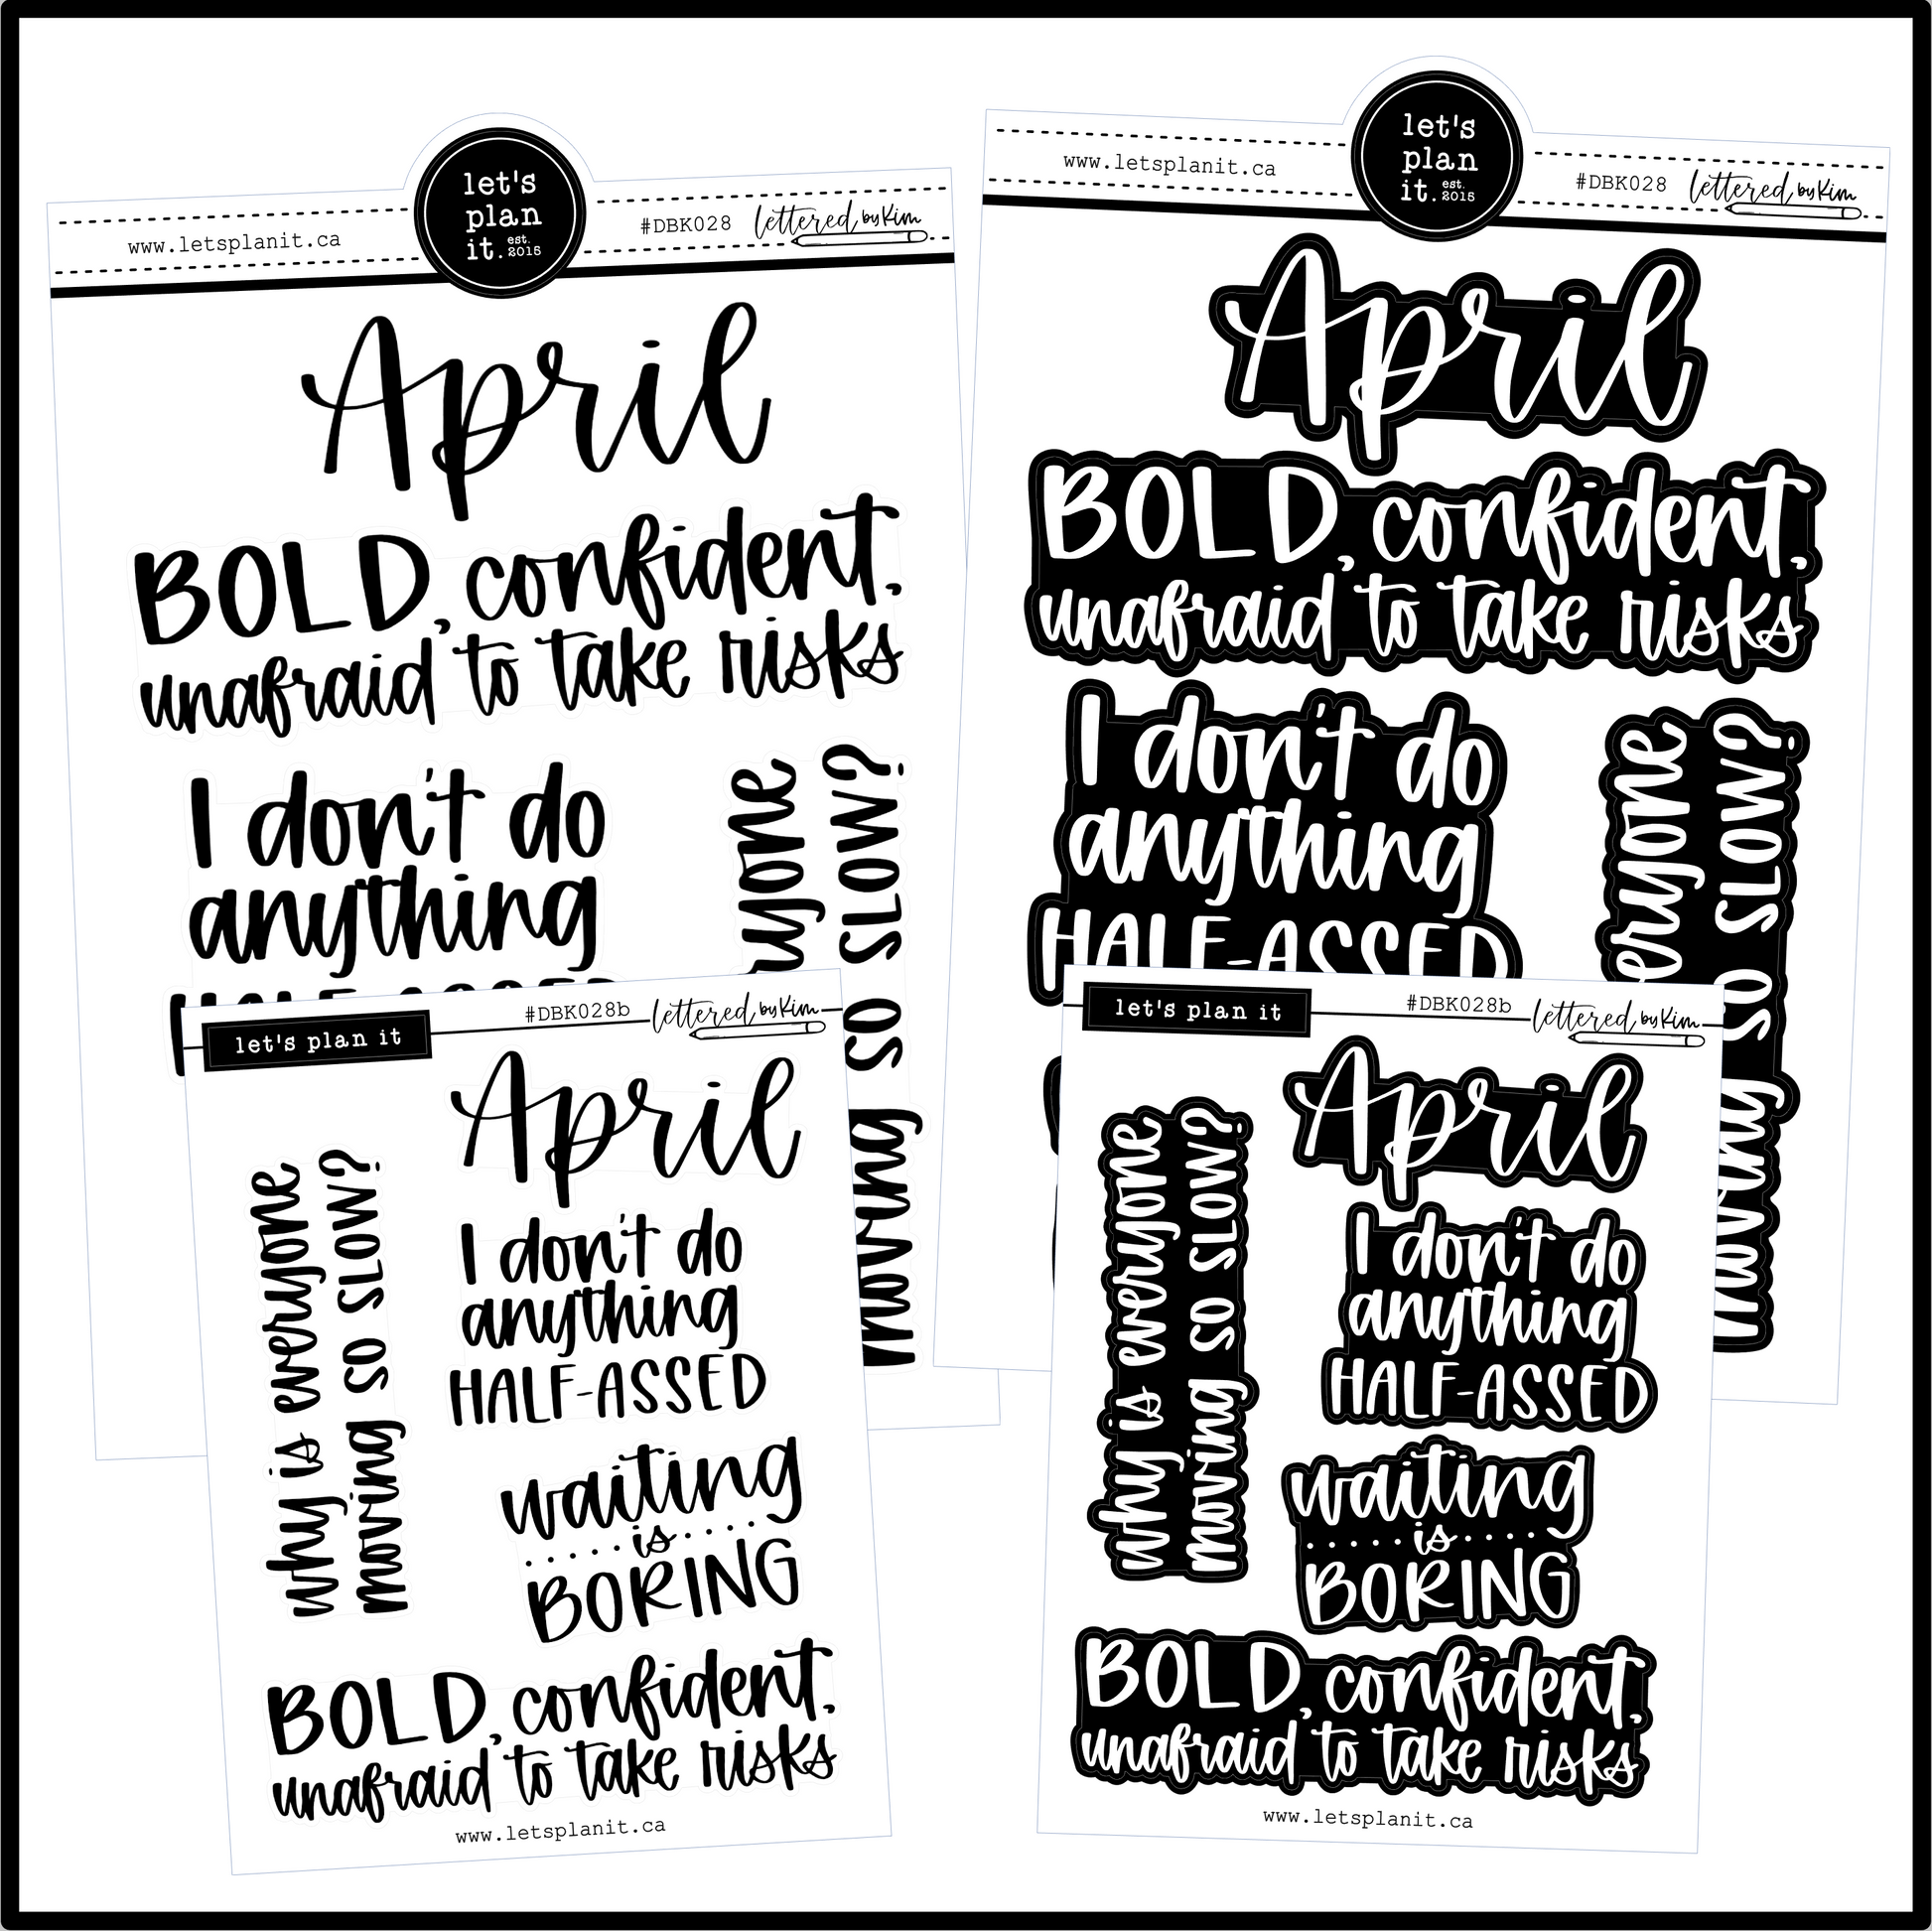 let's
plan
it. est. 2015
www.letsplanit.ca
#DBK028 lettered by Kim
April
BOLD, confident,
unafraid to take risks
I don't do
anything
HALF-ASSED
everyone
moving so slow?
let's
plan
it. est. 2015
www.letsplanit.ca
#DBK028 lettered by Kim
April
BOLD, confident,
unafraid to take risks
I don't do
anything
HALF-ASSED
everyone
moving so slow?
let's plan it
#DBK028b lettered by Kim
April
why is everyone
moving so slow?
I don't do
anything
HALF-ASSED
waiting
is
BORING
BOLD, confident,
unafraid to take risks
www.letsplanit.ca
let's plan it
#DBK028b lettered by Kim
April
why is everyone
moving so slow?
I don't do
anything
HALF-ASSED
waiting
is
BORING
BOLD, confident,
unafraid to take risks
www.letsplanit.ca